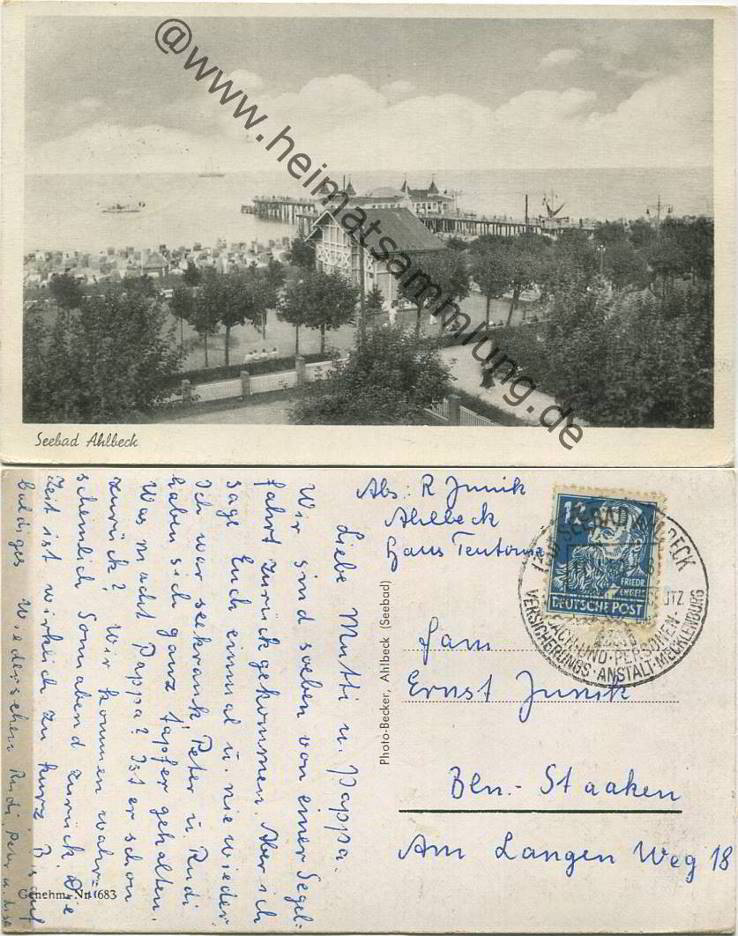 @www.heimatsammlung.de
Seebad Ahlbeck
Liebe Mutti u. Pappa.
Wir sind soeben von einer Segel-
fahrt zurückgekommen. Aber ich
sage Euch einmal u. nie wieder
Ich war seekrank, Peter u. Rudi
haben sich ganz tapfer gehalten.
Was macht Pappa? Ist er schon
zurück? Wir kommen wahr-
scheinlich Sonnabend zurück. Die
Zeit ist wirklich zu kurz Bis auf
baldiges Wiedersehen Rudi, Peter u.
Genehm. Nr. 1683
Photo-Becker, Ahlbeck (Seebad)
Abs: R Junik
Ahlbeck
Haus Teutonia
12
FRIEDR
ENGELS
DEUTSCHE POST
SEEBAD AHLBECK
SACH-UND-PERSONEN-
VERSICHERUNGS-ANSTALT-MECKLENBURG
Fam
Ernst Junik
Bln.-Staaken
Am Langen Weg 18